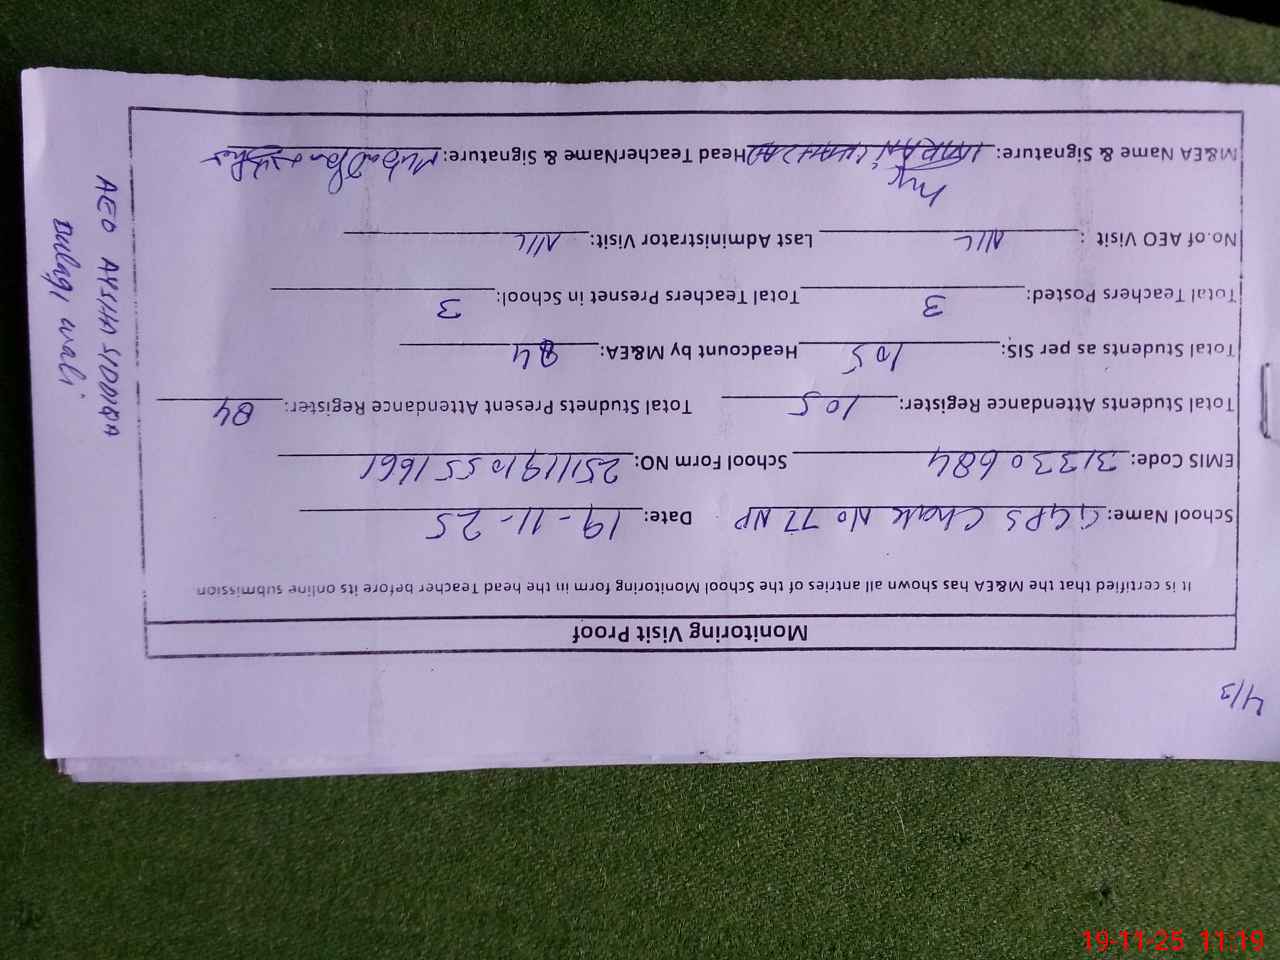 4/3
Monitoring Visit Proof
It is certified that the M&EA has shown all antries of the School Monitoring form in the head Teacher before its online submission
School Name: GGPS Chak No 77 NP Date: 19-11-25
EMIS Code: 31330684 School Form NO: 25111910551661
Total Students Attendance Register: 105 Total Studnets Present Attendance Register: 84
Total Students as per SIS: 105 Headcount by M&EA: 84
Total Teachers Posted: 3 Total Teachers Presnet in School: 3
No.of AEO Visit : NIL Last Administrator Visit: NIL
M&EA Name & Signature: IMRAN Head TeacherName & Signature:
AEO AYSHA SIDDIQA
Bulaqi wali
19-11-25 11:19